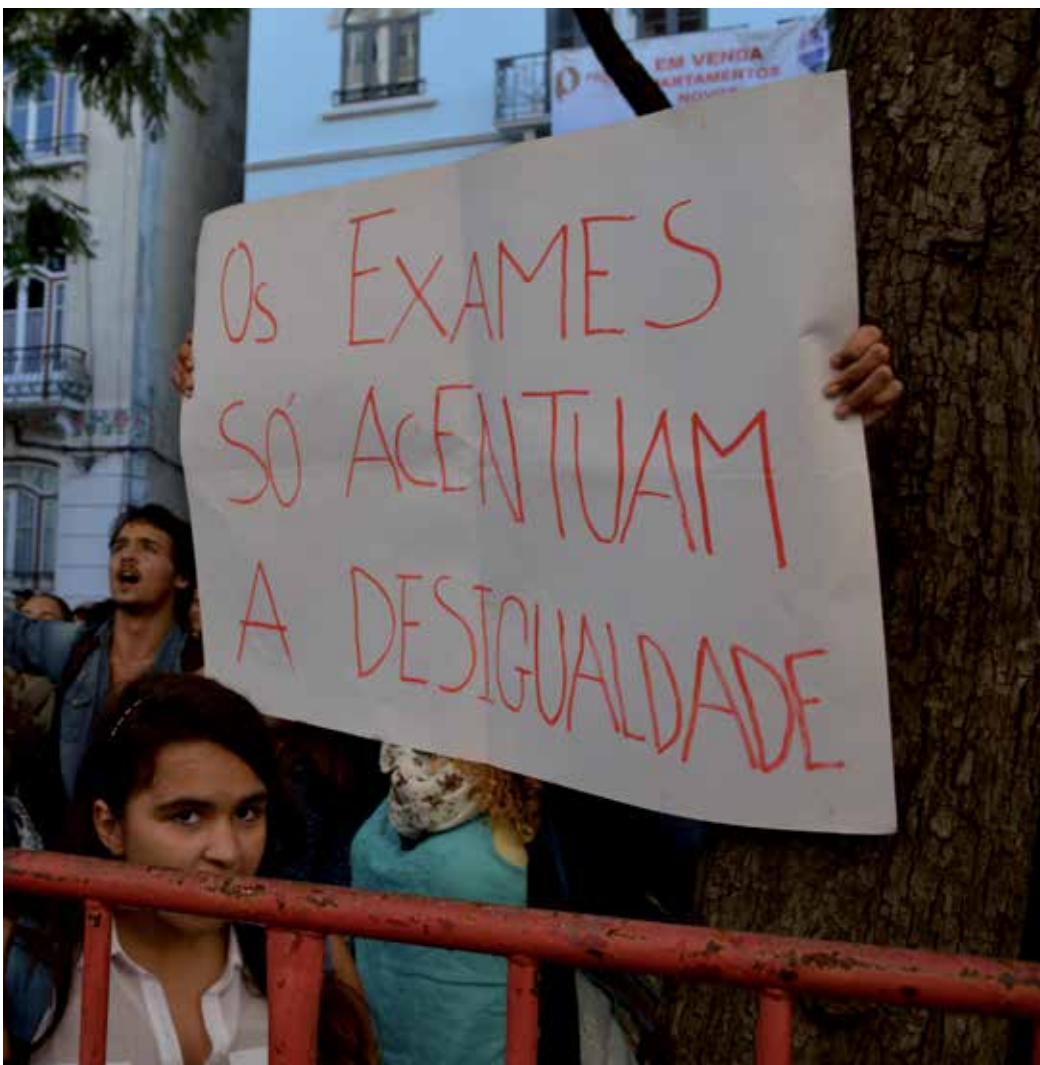 EM VENDA
APARTAMENTOS
NOVOS
Os EXAMES
SÓ ACENTUAM
A DESIGUALDADE